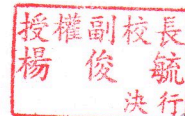 授權副校長
楊俊毓
決行